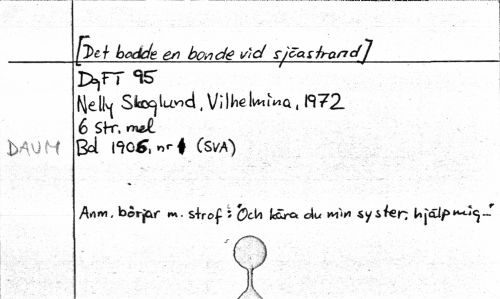 [Det bodde en bonde vid sjöastrand]
DgFT 95
Nelly Skoglund, Vilhelmina, 1972
6 str. mel
DAUM Bd 1906, nr 1 (SVA)
Anm. börjar m. strof: "Och kära du min syster, hjälp mig-"